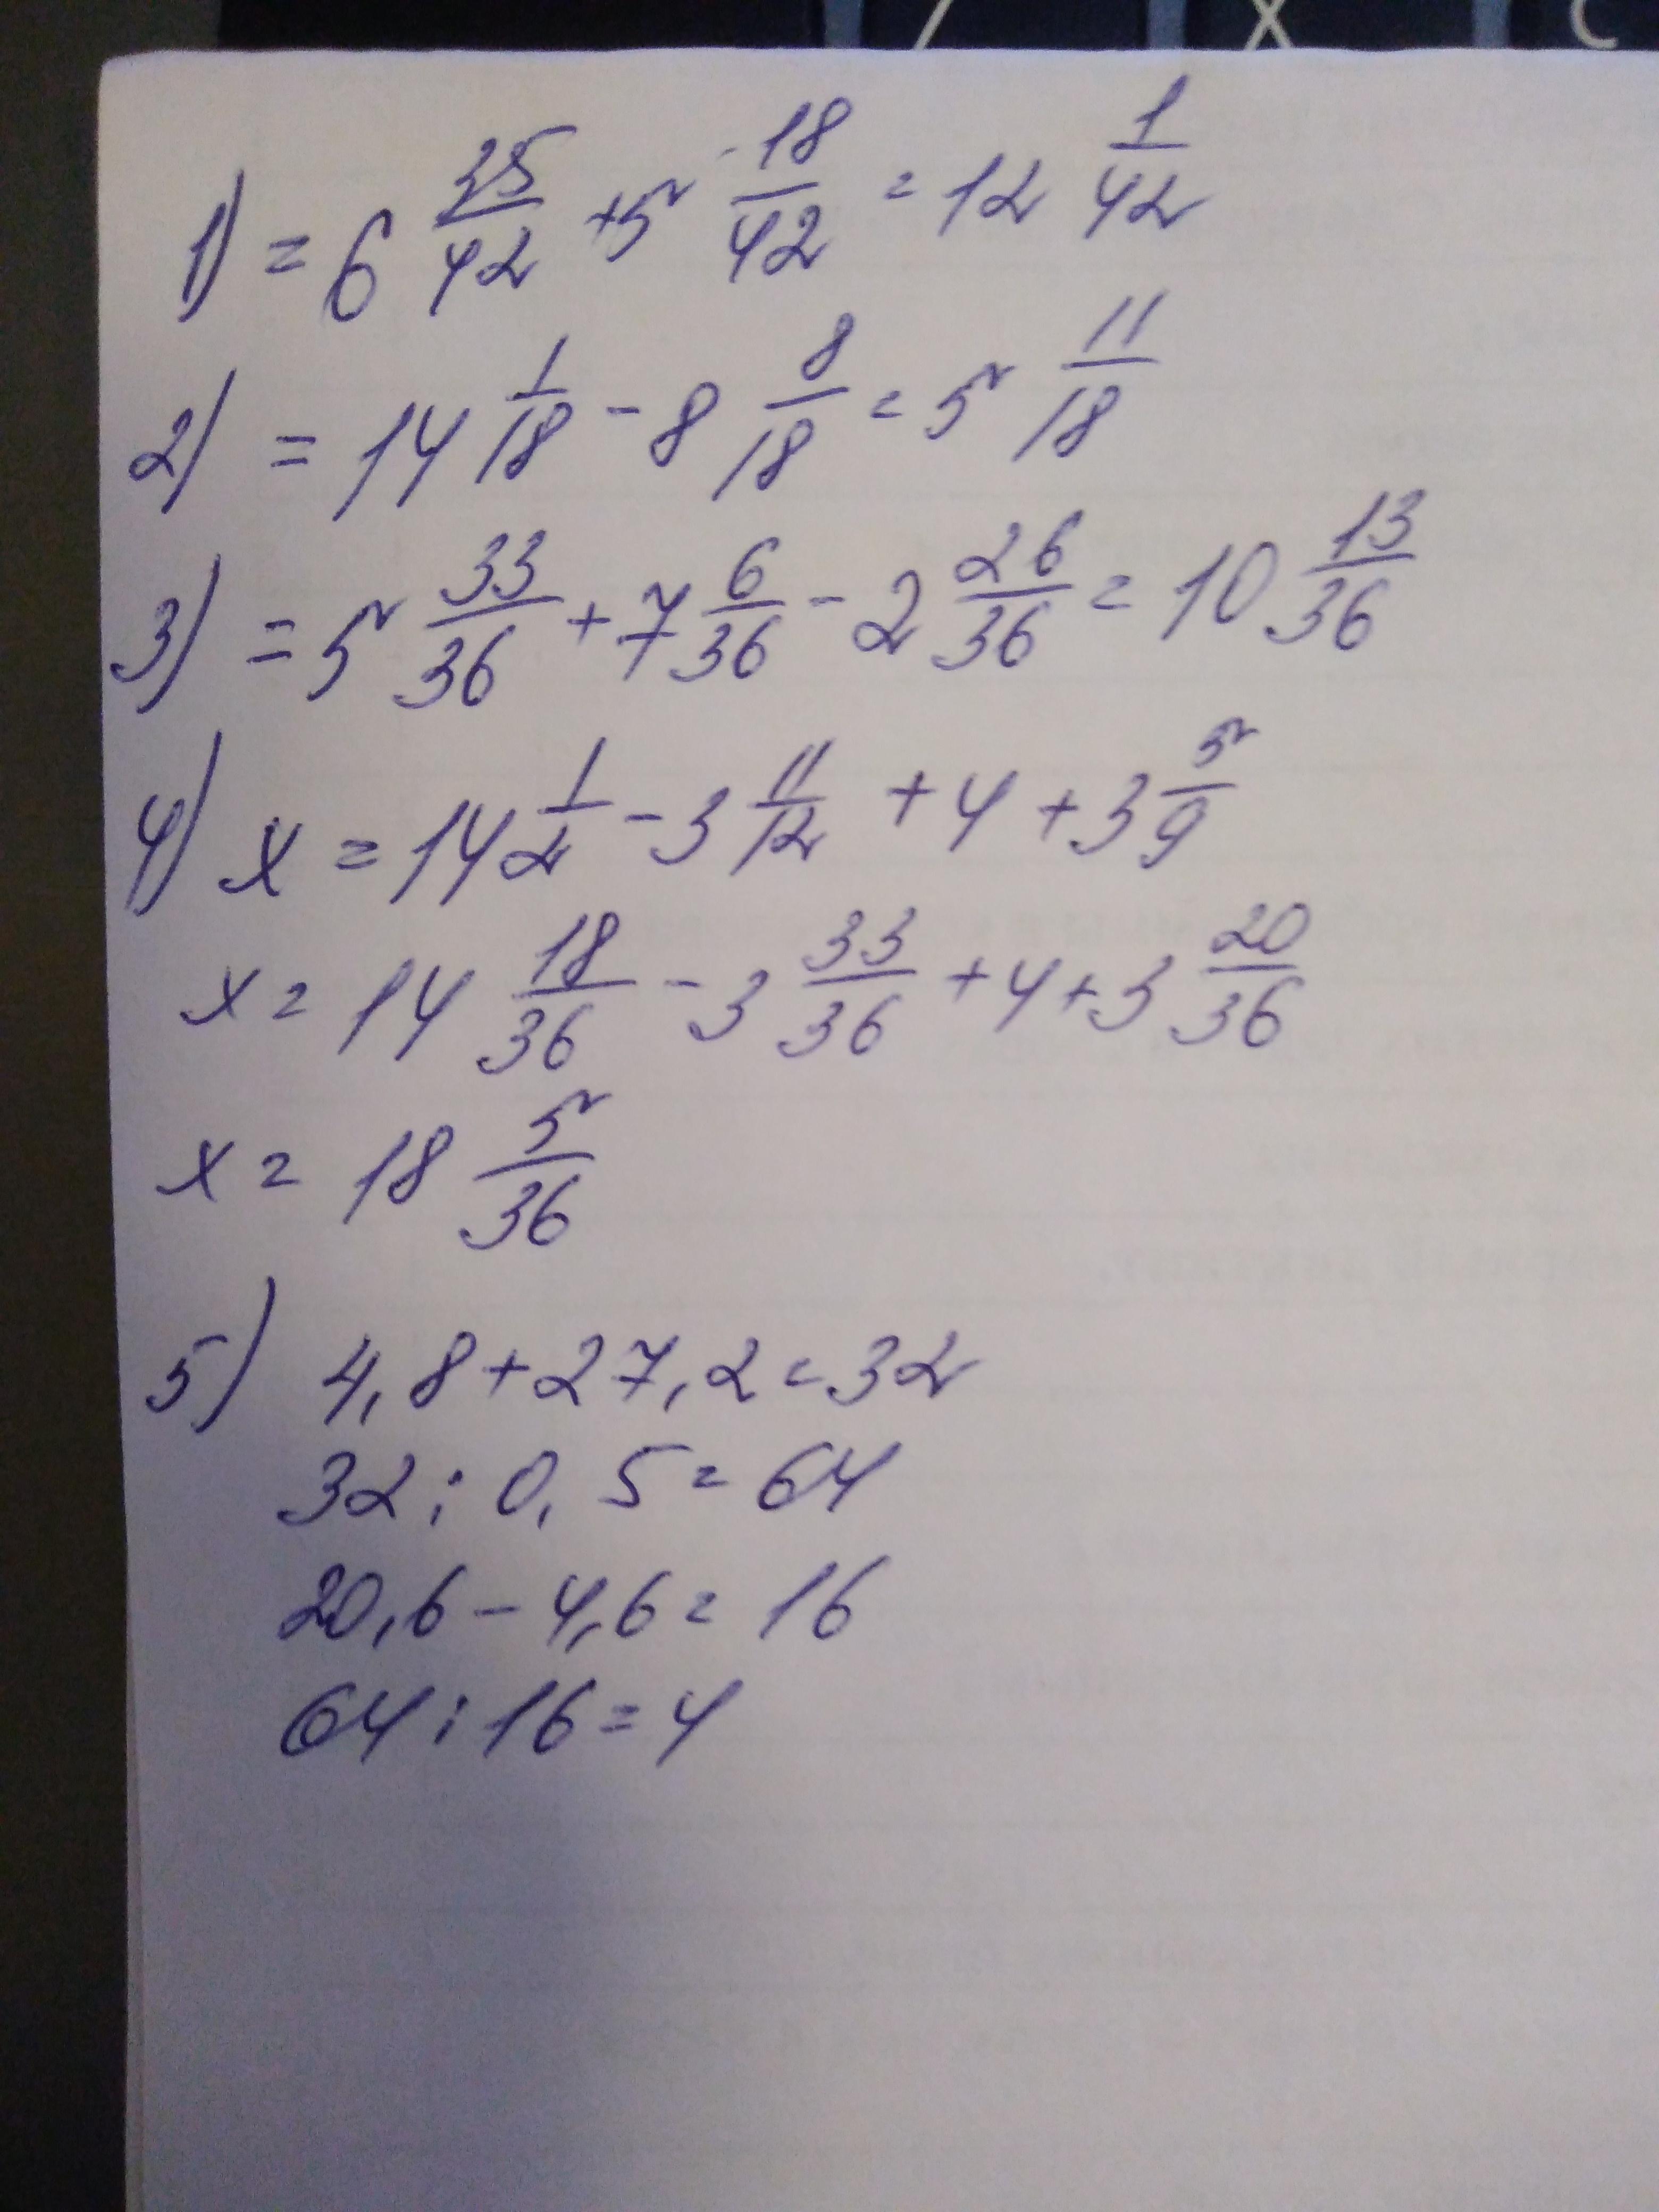 / X C
1) = 6 25/42 + 5 18/42 = 12 1/42
2) = 14 1/18 - 8 8/18 = 5 11/18
3) = 5 33/36 + 7 6/36 - 2 26/36 = 10 13/36
4) x = 14 1/2 - 3 11/12 + 4 + 3 5/9
x = 14 18/36 - 3 33/36 + 4 + 3 20/36
x = 18 5/36
5) 4,8 + 27,2 = 32
32 : 0,5 = 64
20,6 - 4,6 = 16
64 : 16 = 4